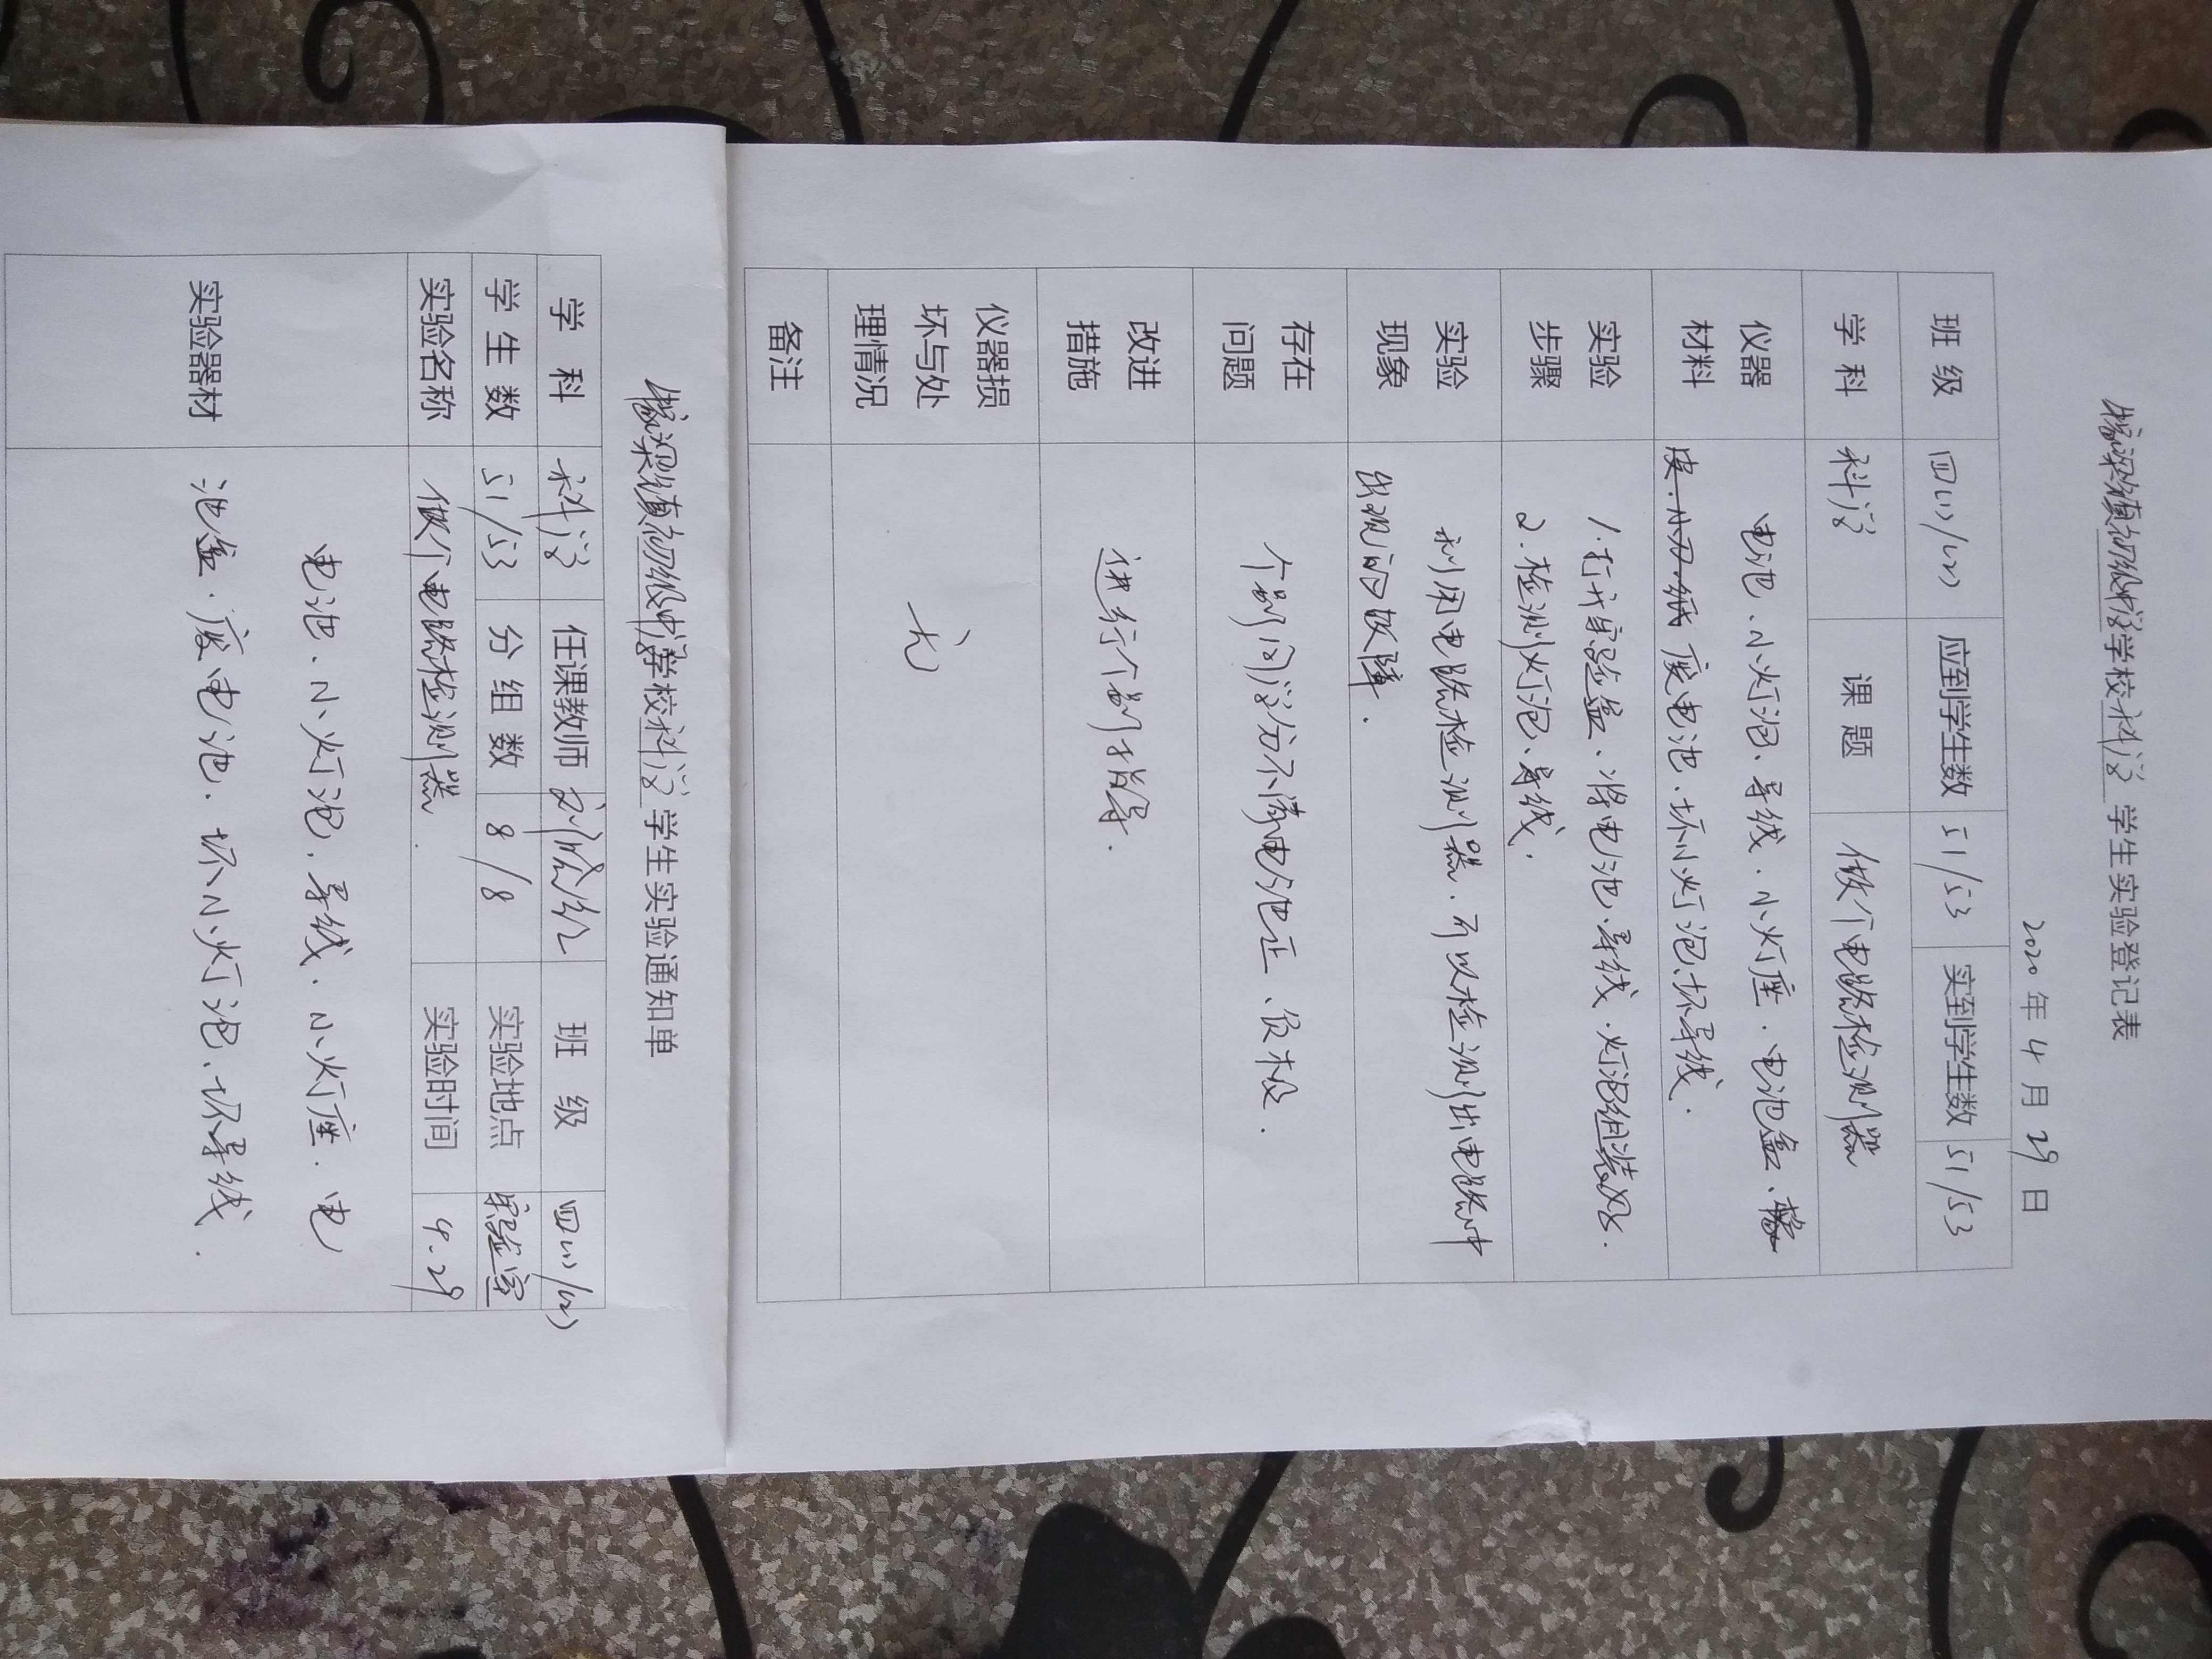 梁镇初级中学学校科学学生实验登记表
2020年4月29日
班级 四(1)/(2) 应到学生数 51/53 实到学生数 51/53
学科 科学 课题 做个电路检测器
仪器材料 电池、小灯泡、导线、小灯座、电池盒、橡
皮、小刀、纸 废电池、坏小灯泡、坏导线.
实验步骤 1.打开实验盒、将电池、导线、灯泡组装好.
2.检测灯泡、导线.
实验现象 利用电路检测器、可以检测出电路中
出现的故障.
存在问题 个别同学分不清电池正、负极.
改进措施 进行个别指导.
仪器损坏与处理情况 无
备注
梁镇初级中学学校科学学生实验通知单
学科 科学 任课教师 班级 四(1)/(2)
学生数 51/53 分组数 8/8 实验地点 实验室
实验名称 做个电路检测器. 实验时间 4.29
实验器材 电池、小灯泡、导线、小灯座、电
池盒、废电池、坏小灯泡、坏导线.